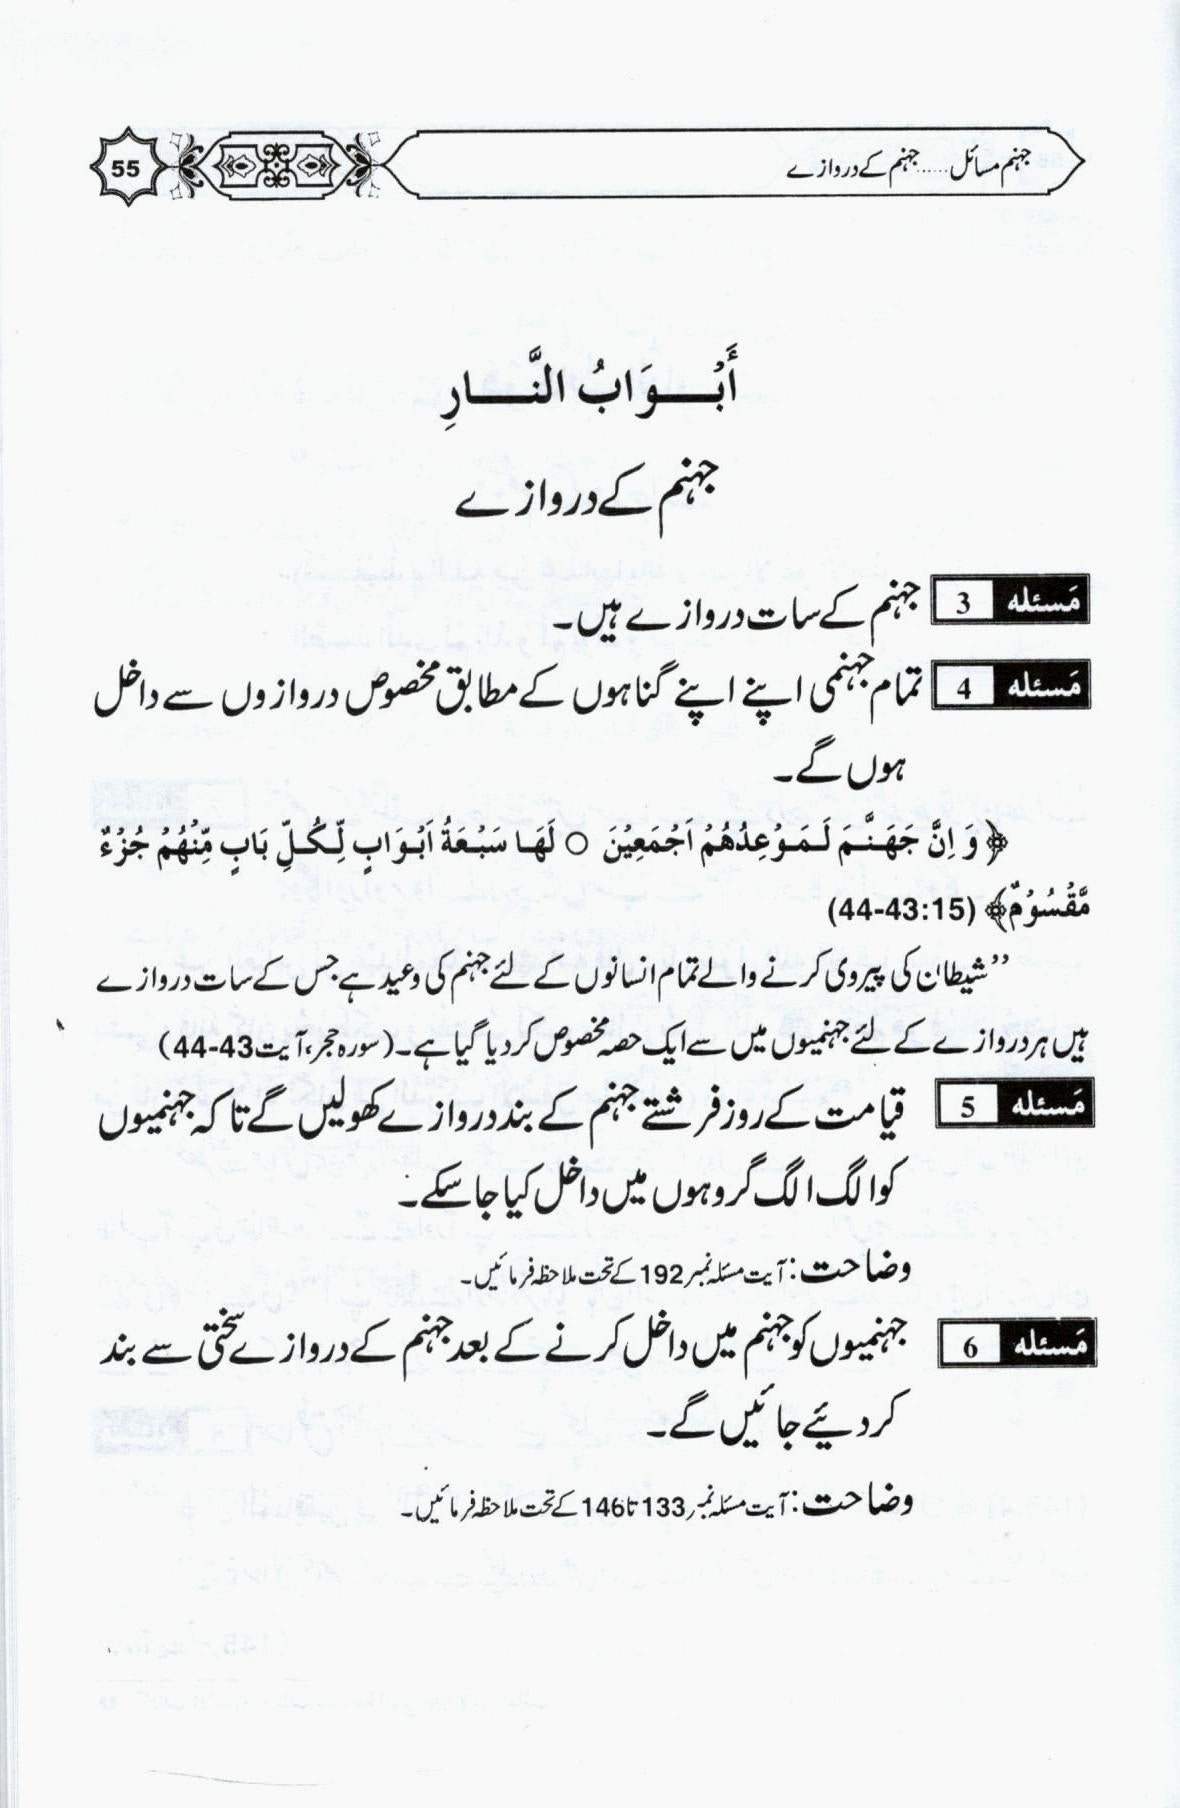 جہنم مسائل......جہنم کے دروازے
55
أَبْـــوَابُ النَّـــارِ
جہنم کے دروازے
مَسئله 3 جہنم کے سات دروازے ہیں۔
مَسئله 4 تمام جہنمی اپنے اپنے گناہوں کے مطابق مخصوص دروازوں سے داخل
ہوں گے۔
﴿وَ اِنَّ جَهَنَّمَ لَمَوْعِدُهُمْ اَجْمَعِيْنَ ○ لَهَا سَبْعَةُ اَبْوَابٍ لِّكُلِّ بَابٍ مِّنْهُمْ جُزْءٌ
مَّقْسُوْمٌ﴾ (44-43:15)
’’شیطان کی پیروی کرنے والے تمام انسانوں کے لئے جہنم کی وعید ہے جس کے سات دروازے
ہیں ہر دروازے کے لئے جہنمیوں میں سے ایک حصہ مخصوص کر دیا گیا ہے۔ (سورہ حجر، آیت 43-44)
مَسئله 5 قیامت کے روز فرشتے جہنم کے بند دروازے کھولیں گے تاکہ جہنمیوں
کو الگ الگ گروہوں میں داخل کیا جا سکے۔
وضاحت: آیت مسئلہ نمبر 192 کے تحت ملاحظہ فرمائیں۔
مَسئله 6 جہنمیوں کو جہنم میں داخل کرنے کے بعد جہنم کے دروازے سختی سے بند
کر دیئے جائیں گے۔
وضاحت: آیت مسئلہ نمبر 133 تا 146 کے تحت ملاحظہ فرمائیں۔